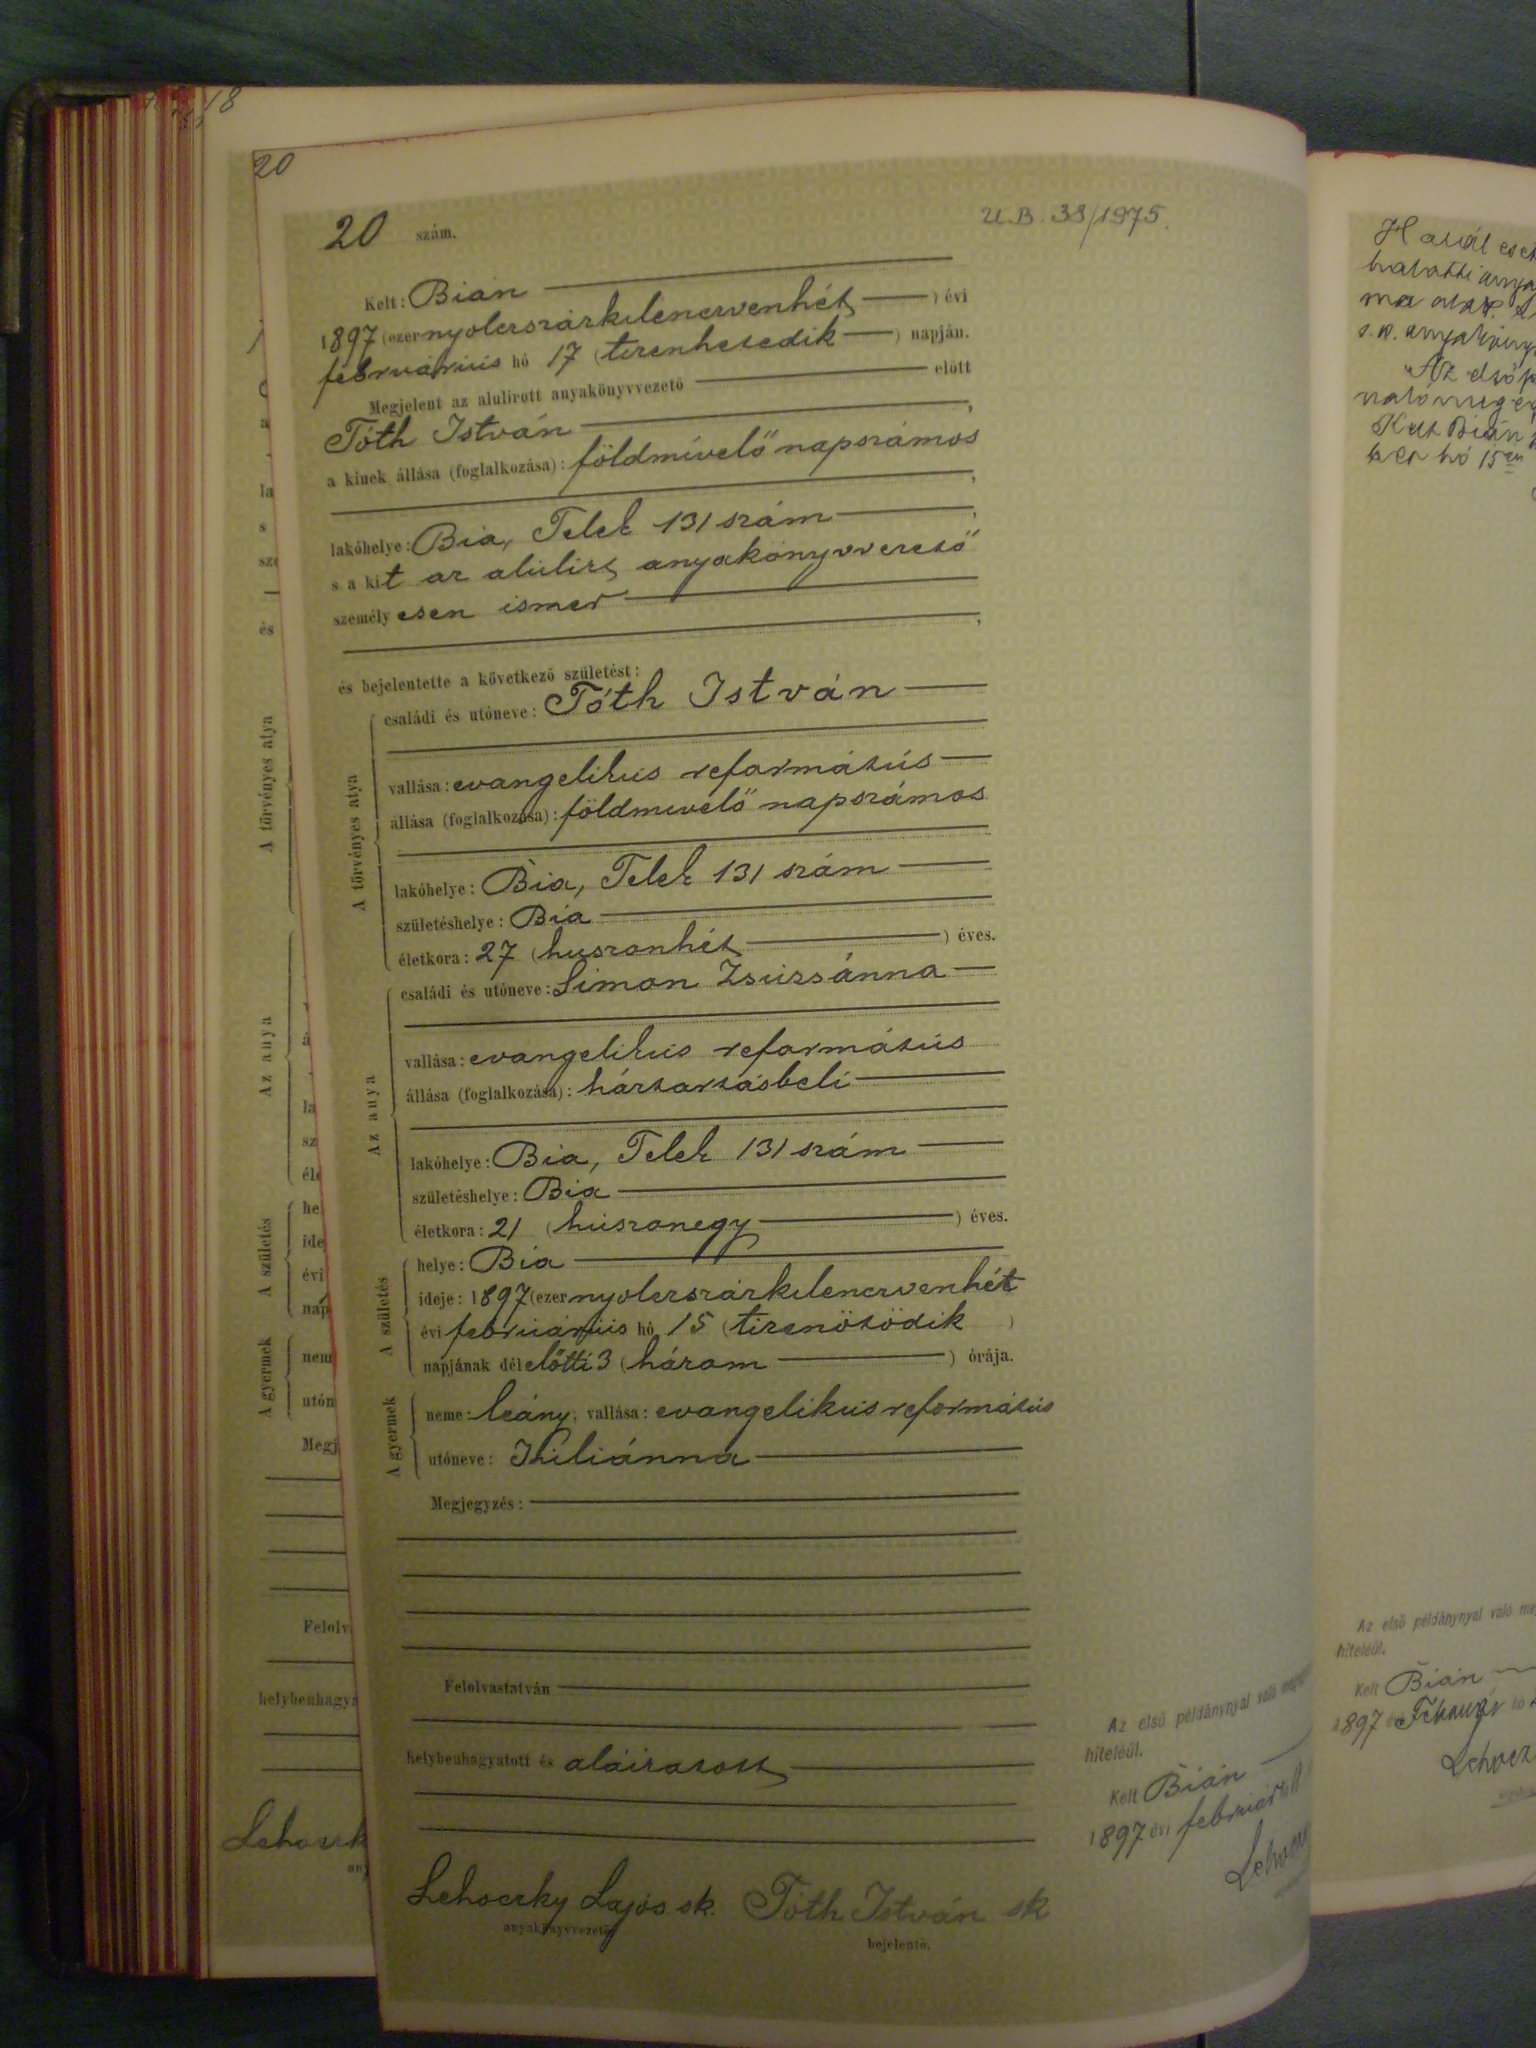 18
20
20 szám.
U.B. 38/1975.
Kelt: Bián
1897 (ezernyolczszázkilenczvenhét) évi
februárius hó 17 (tizenhetedik) napján.
Megjelent az alulirott anyakönyvvezető előtt
Tóth István,
a kinek állása (foglalkozása): földmívelő napszámos,
lakóhelye: Bia, Telek 131 szám,
s a kit az alulirt anyakönyvvezető
személyesen ismer,
és bejelentette a következő születést:
A törvényes atya
családi és utóneve: Tóth István
vallása: evangelikus református
állása (foglalkozása): földmivelő napszámos
lakóhelye: Bia, Telek 131 szám
születéshelye: Bia
életkora: 27 (huszonhét) éves.
Az anya
családi és utóneve: Simon Zsuzsánna
vallása: evangelikus református
állása (foglalkozása): háztartásbeli
lakóhelye: Bia, Telek 131 szám
születéshelye: Bia
életkora: 21 (huszonegy) éves.
A születés
helye: Bia
ideje: 1897 (ezernyolczszázkilenczvenhét
évi februárius hó 15 (tizenötödik)
napjának délelőtti 3 (három) órája.
A gyermek
neme: leány; vallása: evangelikus református
utóneve: Juliánna
Megjegyzés:
Felolvastatván
helybenhagyatott és aláiratott
Lehoczky Lajos sk. Tóth István sk
anyakönyvvezető
bejelentő.
Az első példánynyal való
hiteléül.
Kelt Bián
1897 évi február
A törvényes atya
Az anya
A születés
A gyermek
Az első példánynyal való
hiteléül.
Kelt Bián
1897